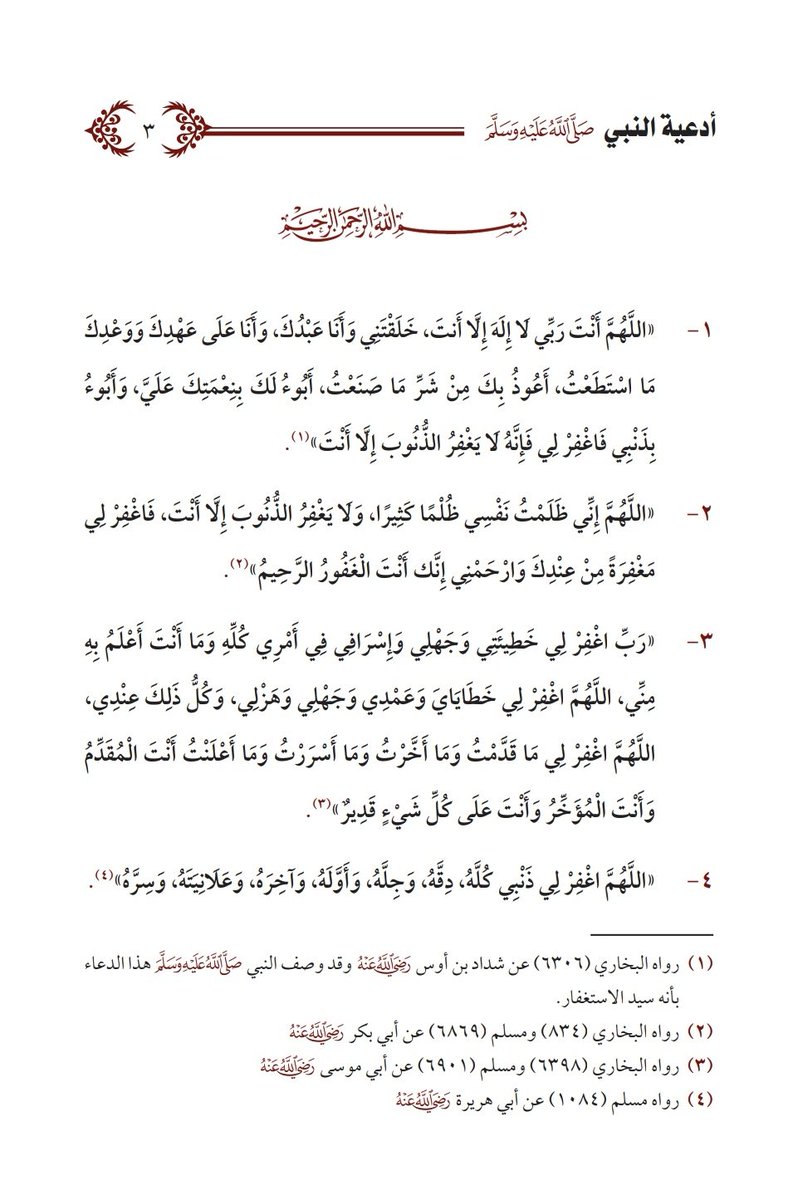 أدعية النبي صَلَّى اللَّهُ عَلَيْهِ وَسَلَّمَ ٣
بِسْمِ اللهِ الرَّحْمَنِ الرَّحِيمِ
١- «اللَّهُمَّ أَنْتَ رَبِّي لَا إِلَهَ إِلَّا أَنتَ، خَلَقْتَنِي وَأَنَا عَبْدُكَ، وَأَنَا عَلَى عَهْدِكَ وَوَعْدِكَ
مَا اسْتَطَعْتُ، أَعُوذُ بِكَ مِنْ شَرِّ مَا صَنَعْتُ، أَبُوءُ لَكَ بِنِعْمَتِكَ عَلَيَّ، وَأَبُوءُ
بِذَنْبِي فَاغْفِرْ لِي فَإِنَّهُ لَا يَغْفِرُ الذُّنُوبَ إِلَّا أَنْتَ»(١).
٢- «اللَّهُمَّ إِنِّي ظَلَمْتُ نَفْسِي ظُلْمًا كَثِيرًا، وَلَا يَغْفِرُ الذُّنُوبَ إِلَّا أَنْتَ، فَاغْفِرْ لِي
مَغْفِرَةً مِنْ عِنْدِكَ وَارْحَمْنِي إِنَّك أَنْتَ الْغَفُورُ الرَّحِيمُ»(٢).
٣- «رَبِّ اغْفِرْ لِي خَطِيئَتِي وَجَهْلِي وَإِسْرَافِي فِي أَمْرِي كُلِّهِ وَمَا أَنْتَ أَعْلَمُ بِهِ
مِنِّي، اللَّهُمَّ اغْفِرْ لِي خَطَايَايَ وَعَمْدِي وَجَهْلِي وَهَزْلِي، وَكُلُّ ذَلِكَ عِنْدِي،
اللَّهُمَّ اغْفِرْ لِي مَا قَدَّمْتُ وَمَا أَخَّرْتُ وَمَا أَسْرَرْتُ وَمَا أَعْلَنْتُ أَنْتَ الْمُقَدِّمُ
وَأَنْتَ الْمُؤَخِّرُ وَأَنْتَ عَلَى كُلِّ شَيْءٍ قَدِيرٌ»(٣).
٤- «اللَّهُمَّ اغْفِرْ لِي ذَنْبِي كُلَّهُ، دِقَّهُ، وَجِلَّهُ، وَأَوَّلَهُ، وَآخِرَهُ، وَعَلَانِيَتَهُ، وَسِرَّهُ»(٤).
(١) رواه البخاري (٦٣٠٦) عن شداد بن أوس رَضِيَ اللَّهُ عَنْهُ وقد وصف النبي صَلَّى اللَّهُ عَلَيْهِ وَسَلَّمَ هذا الدعاء
بأنه سيد الاستغفار.
(٢) رواه البخاري (٨٣٤) ومسلم (٦٨٦٩) عن أبي بكر رَضِيَ اللَّهُ عَنْهُ
(٣) رواه البخاري (٦٣٩٨) ومسلم (٦٩٠١) عن أبي موسى رَضِيَ اللَّهُ عَنْهُ
(٤) رواه مسلم (١٠٨٤) عن أبي هريرة رَضِيَ اللَّهُ عَنْهُ